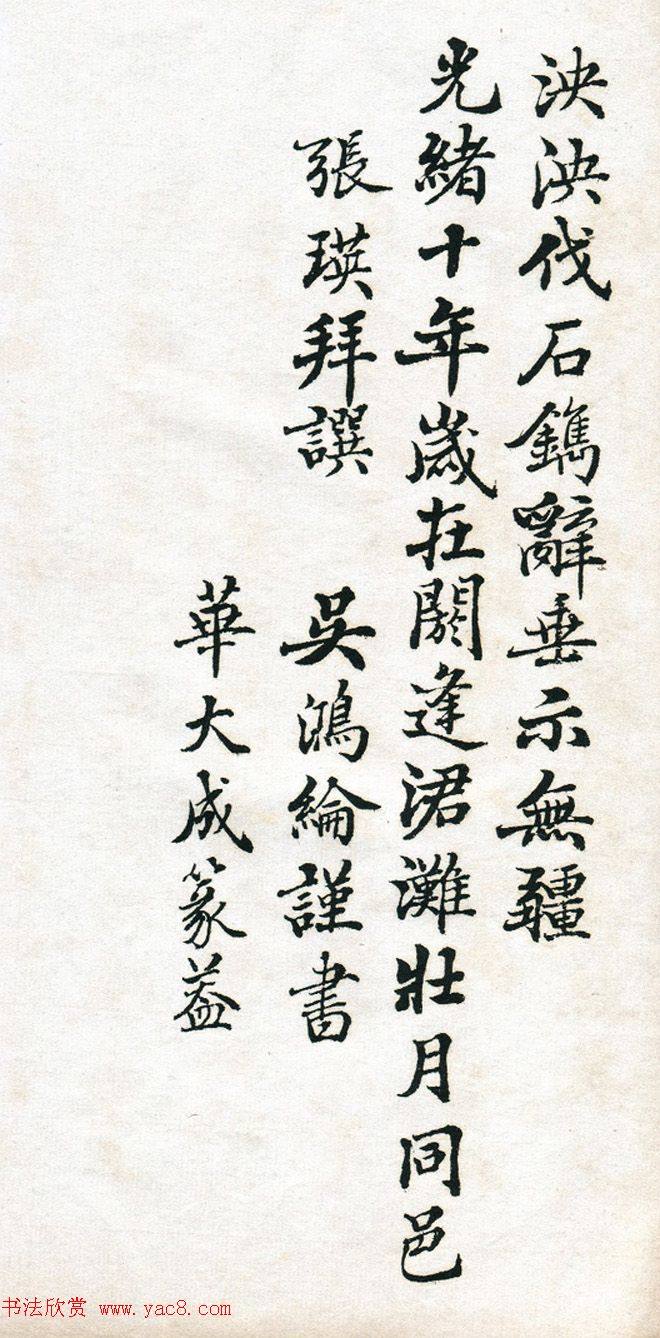 泱泱伐石鐫辭垂示無疆
光緒十年歲在閼逢涒灘壯月同邑
張瑛拜譔
吳鴻綸謹書
華大成篆蓋
书法欣赏 www.yac8.com